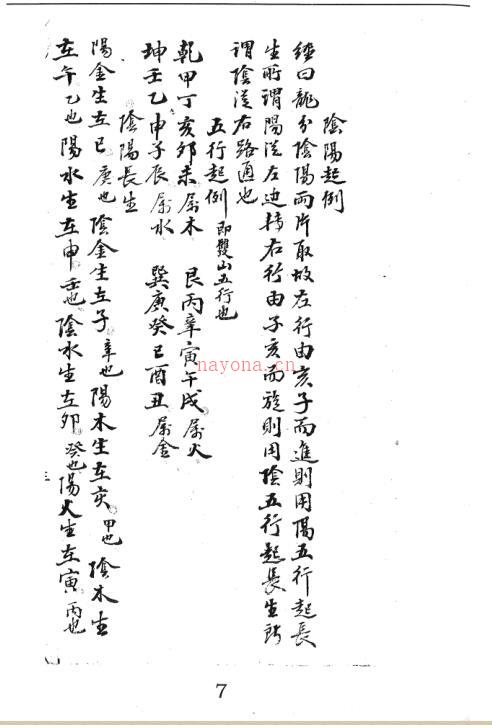 陰陽起例
經曰龍分陰陽兩片取故左行由亥子而進則用陽五行起長
生所謂陽從左边轉右行由子亥而旋則用陰五行起長生所
謂陰從右路通也
五行起例即雙山五行也
乾甲丁亥卯未属木 艮丙辛寅午戌属火
坤壬乙申子辰属水 巽庚癸巳酉丑属金
陰陽長生
陽金生在巳庚也陰金生在子辛也陽木生在亥甲也陰木生
在午乙也陽水生在申壬也陰水生在卯癸也陽火生在寅丙也
三
nayona.cn
7